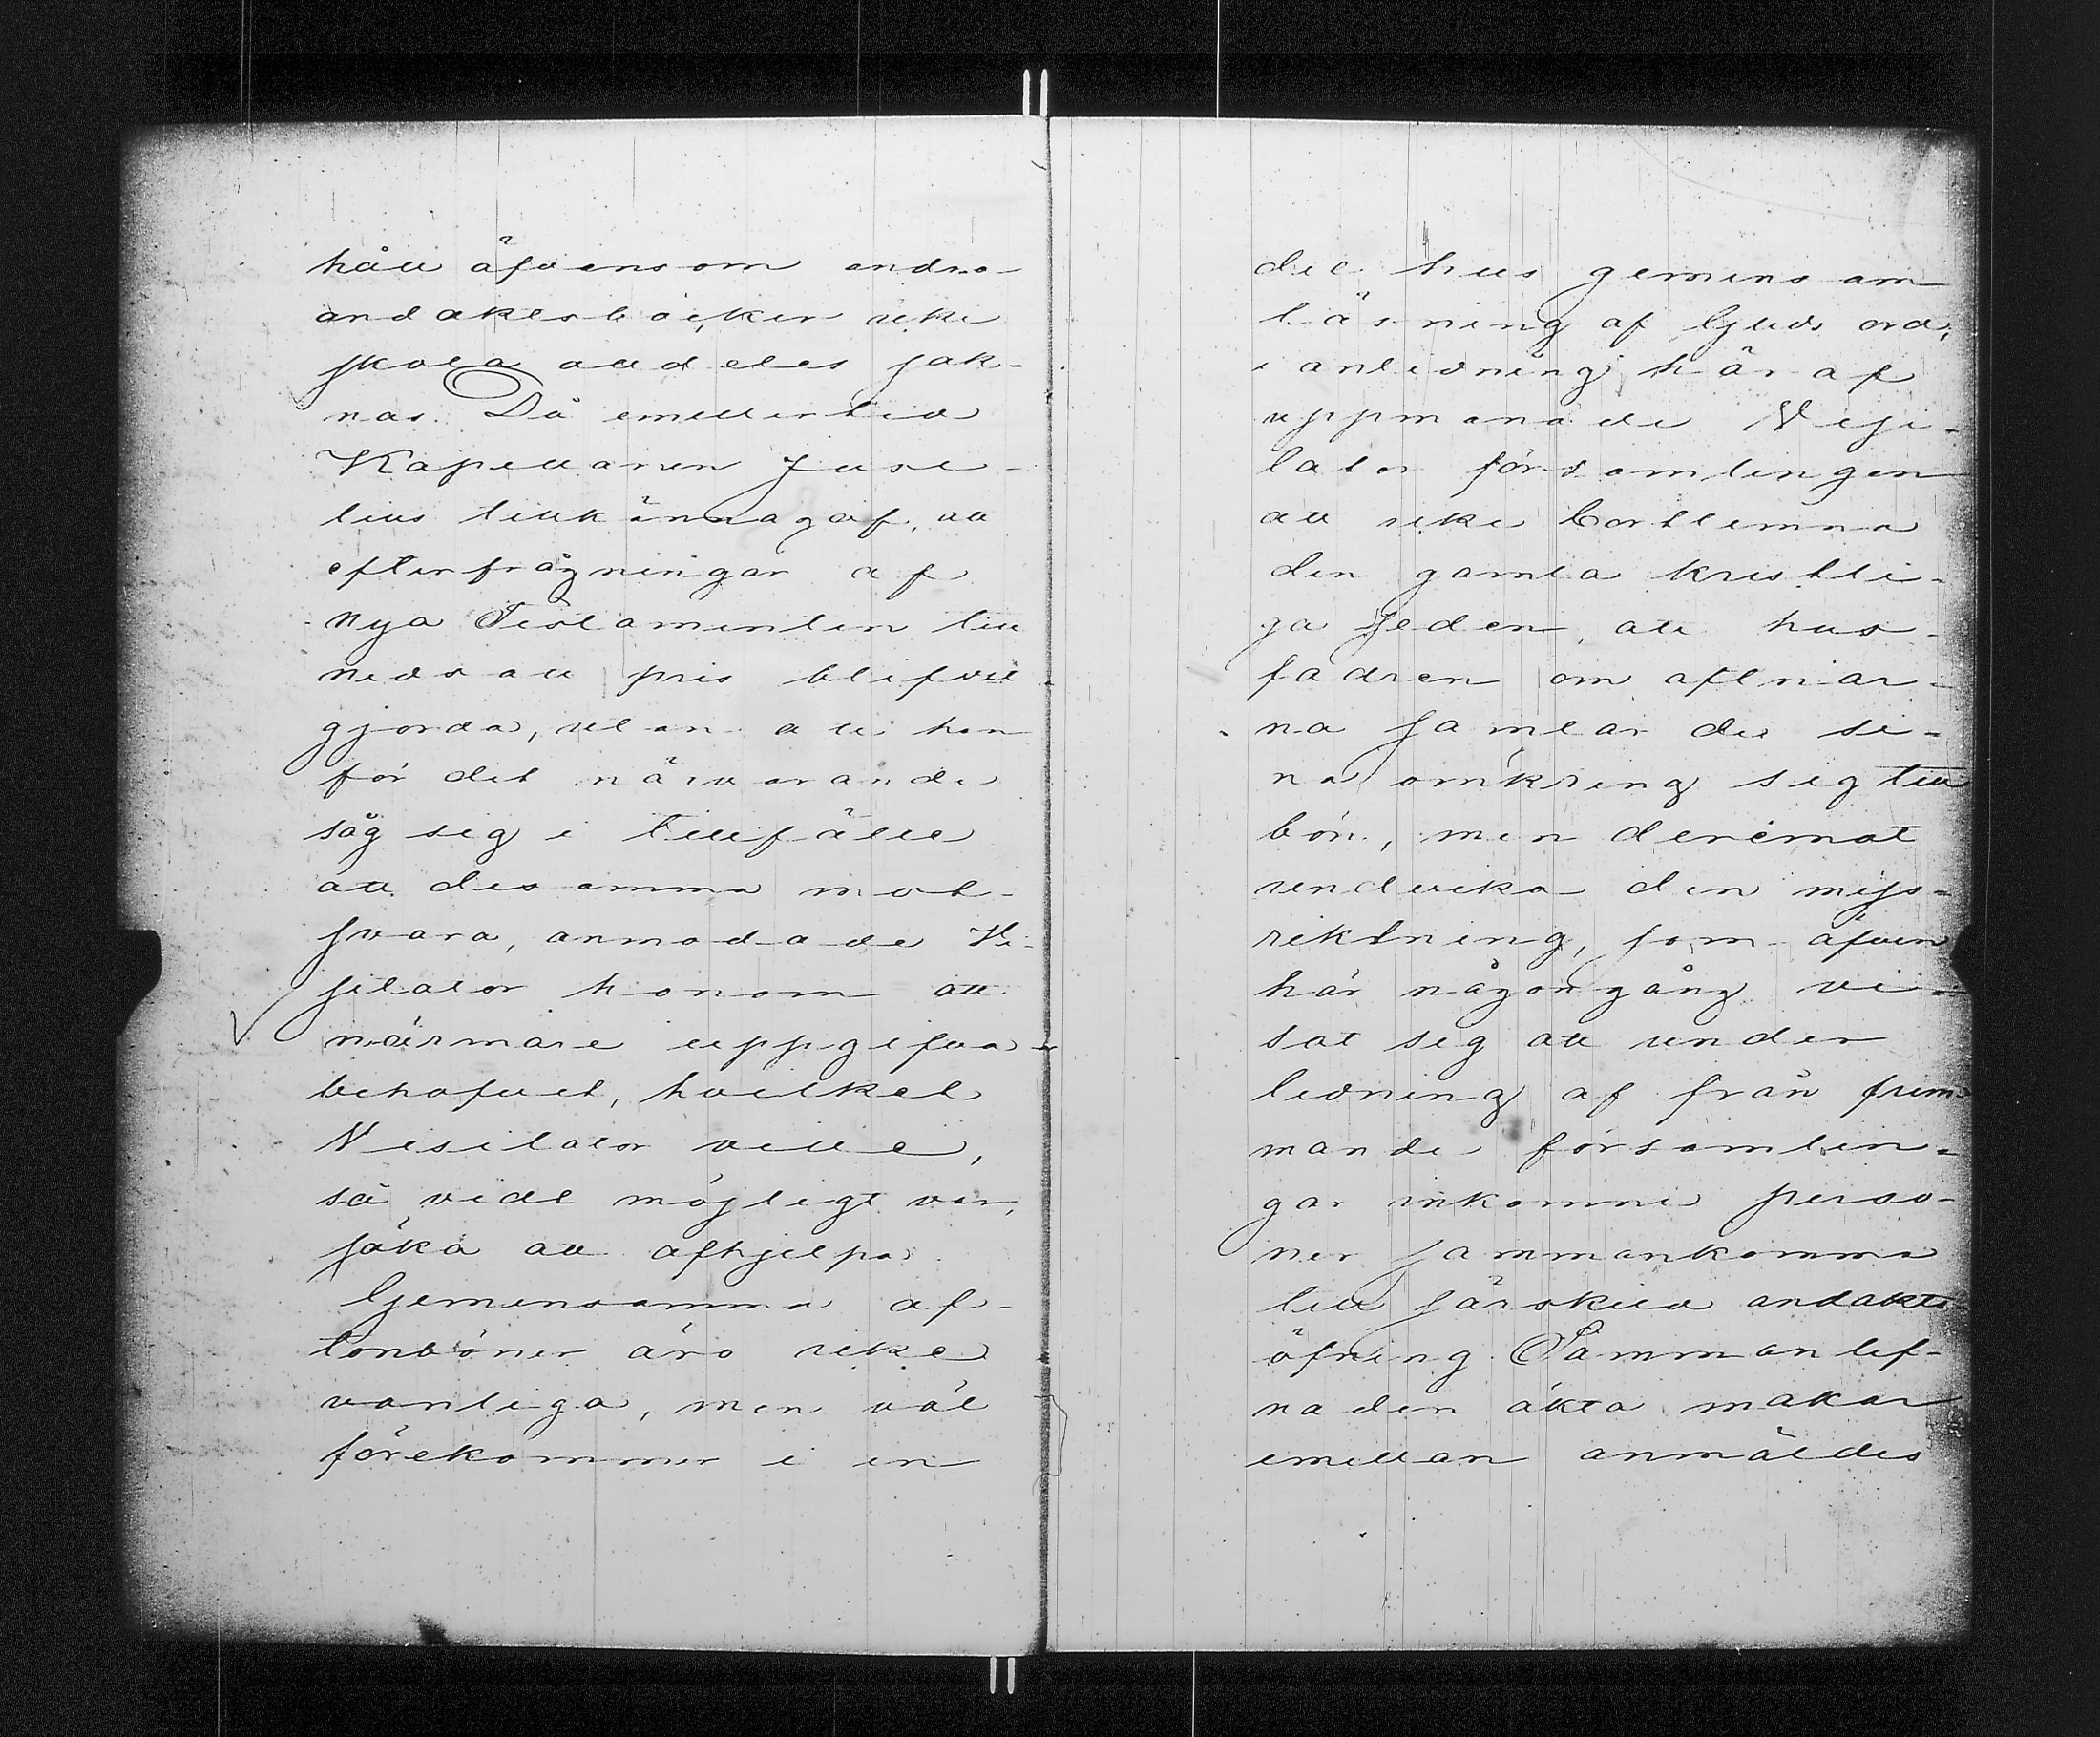 håll äfvensom andra
andaktsböcker icke
skola alldeles sak-
nas. Då emellertid
Kapellanen Juse-
lius tillkännagaf, att
efterfrågningar af
nya Testamenten till
nedsatt pris blifvit
gjorda, utan att han
för det närvarande
såg sig i tillfälle
att desamma mot-
svara, anmodade Vi-
sitator honom att
närmare uppgifva
behofvet, hvilket
Visitator ville,
så vidt möjligt var,
söka att afhjelpa.
Gemensamma af-
tonböner äro icke
vanliga, men väl
förekommer i en
del hus gemensam
läsning af Guds ord;
i anledning häraf
uppmanade Visi-
tator församlingen
att icke bortlemna
den gamla kristli-
ga seden, att hus-
fadren om aftnar-
na samlar de si-
na omkring sig till
bön, men deremot
undvika den miss-
riktning, som äfven
här någon gång vi-
sat sig att under
ledning af från frem-
mande församlin-
gar inkomne perso-
ner sammankomma
till särskild andakts-
öfning. Sammanlef-
naden äkta makar
emellan anmäldes